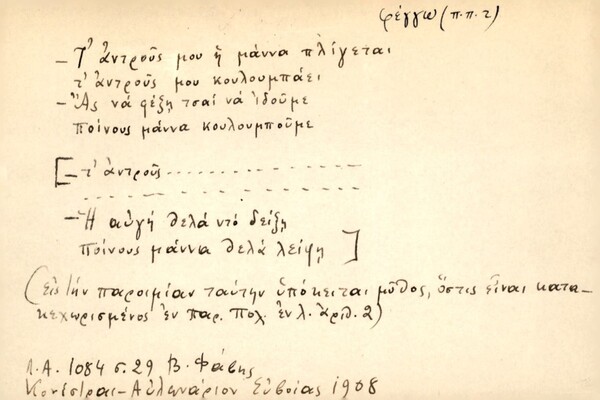 φέγγω (π.π.τ)
– Τ' ἀντροῦς μου ἡ μάννα πλίγεται
τ' ἀντροῦς μου κουλουμπάει
– Ἂς νά φέξῃ τσαί νά ἰδοῦμε
ποίνους μάννα κουλουμποῦμε
[– τ' ἀντροῦς . . . . . . . . . . . . . . . .
– – – – – – – – – – – – – –
– Ἡ αὐγή θελά ντό δείξῃ
ποίνους μάννα θελά λείψῃ ]
(Εἰς τήν παροιμίαν ταύτην ὑπόκειται μῦθος, ὅστις εἶναι κατα–
κεχωρισμένος ἐν παρ. Πολ. ἐν λ. ἀριθ. 2)
Λ.Α. 1084 σ. 29 Β. Φάβης
Κονίστραι–Αὐλωνάριον Εὐβοίας 1908